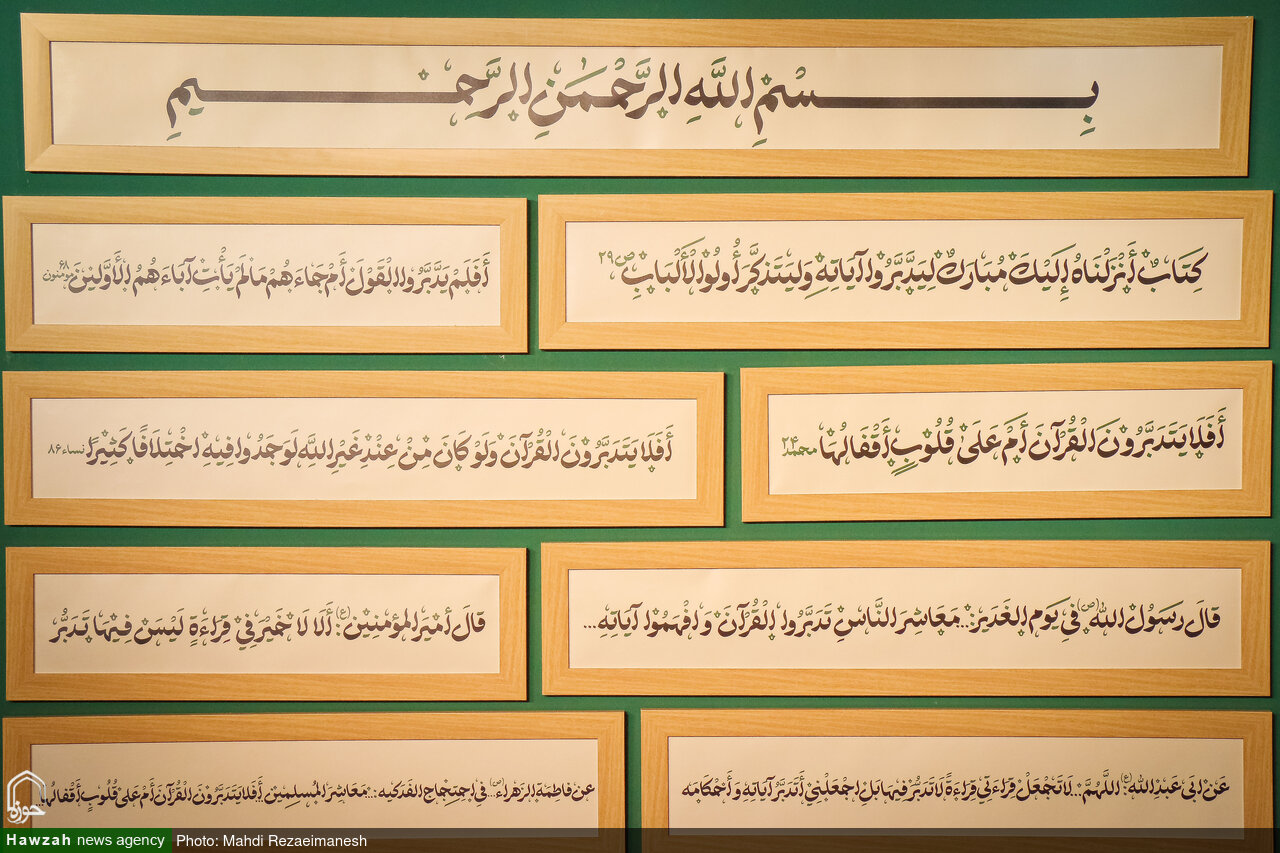 بِسْمِ اللَّهِ الرَّحْمَٰنِ الرَّحِيمِ
كِتَابٌ أَنْزَلْنَاهُ إِلَيْكَ مُبَارَكٌ لِيَدَّبَّرُوا آيَاتِهِ وَلِيَتَذَكَّرَ أُولُو الْأَلْبَابِ ص ۲۹
أَفَلَمْ يَدَّبَّرُوا الْقَوْلَ أَمْ جَاءَهُمْ مَا لَمْ يَأْتِ آبَاءَهُمُ الْأَوَّلِينَ مومنون ۶۸
أَفَلَا يَتَدَبَّرُونَ الْقُرْآنَ أَمْ عَلَىٰ قُلُوبٍ أَقْفَالُهَا محمد ۲۴
أَفَلَا يَتَدَبَّرُونَ الْقُرْآنَ وَلَوْ كَانَ مِنْ عِنْدِ غَيْرِ اللَّهِ لَوَجَدُوا فِيهِ اخْتِلَافًا كَثِيرًا نساء ۸۶
قالَ رَسَولُ اللهِ (ص) فيِ يَوَمِ الغَديَرِ:...مَعَاشِرَ النَّاسِ تَدَبَّرُوا الْقُرْآنَ وَ افْهَمُوا آيَاتِهِ...
قالَ أميَرالمؤمنِينَ (ع): أَلَا لَا خَيْرَ فِي قِرَاءَةٍ لَيْسَ فِيهَا تَدَبُّرُ
عَنْ ابَى عَبدِاللهِ (ع): اللَّهُمَّ... لَا تَجْعَلْ قِرَاءَتِي قِرَاءَةً لَا تَدَبُّرَ فِيهَا بَلِ اجْعَلْنِي أَتَدَبَّرُ آيَاتِهِ وَ أَحْكَامَهُ
عن فاطِمَةِ الزَهراءِ (س)... في اِحتِجاجِ الفَدَكيهِ:... مَعَاشِرَ الْمُسلِمينَ أَفَلَا يَتَدَبَّرُونَ الْقُرْآنَ أَمْ عَلَىٰ قُلُوبٍ أَقْفَالُهَا
حوزه
Hawzah news agency Photo: Mahdi Rezaeimanesh